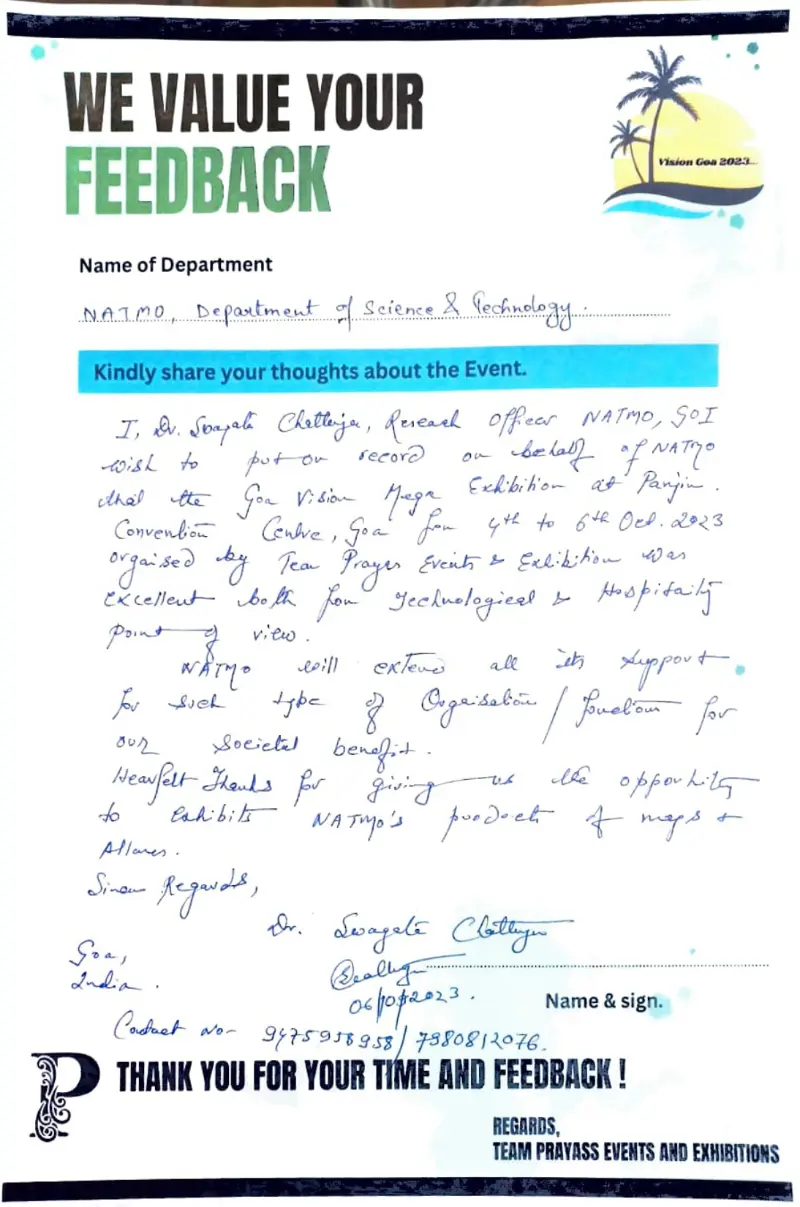 WE VALUE YOUR
FEEDBACK
Vision Goa 2023...
Name of Department
NATMO, Department of Science & Technology.
Kindly share your thoughts about the Event.
I, Dr. Swagata Chatterjee, Research Officer NATMO, GOI
wish to put on record on behalf of NATMO
that the Goa Vision Mega Exhibition at Panjim
Convention Centre, Goa from 4th to 6th Oct. 2023
organised by Team Prayas Events & Exhibition was
excellent both from Technological & Hospitality
point of view.
NATMO will extend all its support
for such type of Organisation / function for
our Societal benefit.
Heartfelt Thanks for giving us the opportunity
to Exhibits NATMO's products of maps &
Atlases.
Sincere Regards,
Dr. Swagata Chatterjee
Goa,
India.
06/10/2023.
Name & sign.
Contact No- 9475958958/7980812076.
P THANK YOU FOR YOUR TIME AND FEEDBACK !
REGARDS,
TEAM PRAYASS EVENTS AND EXHIBITIONS